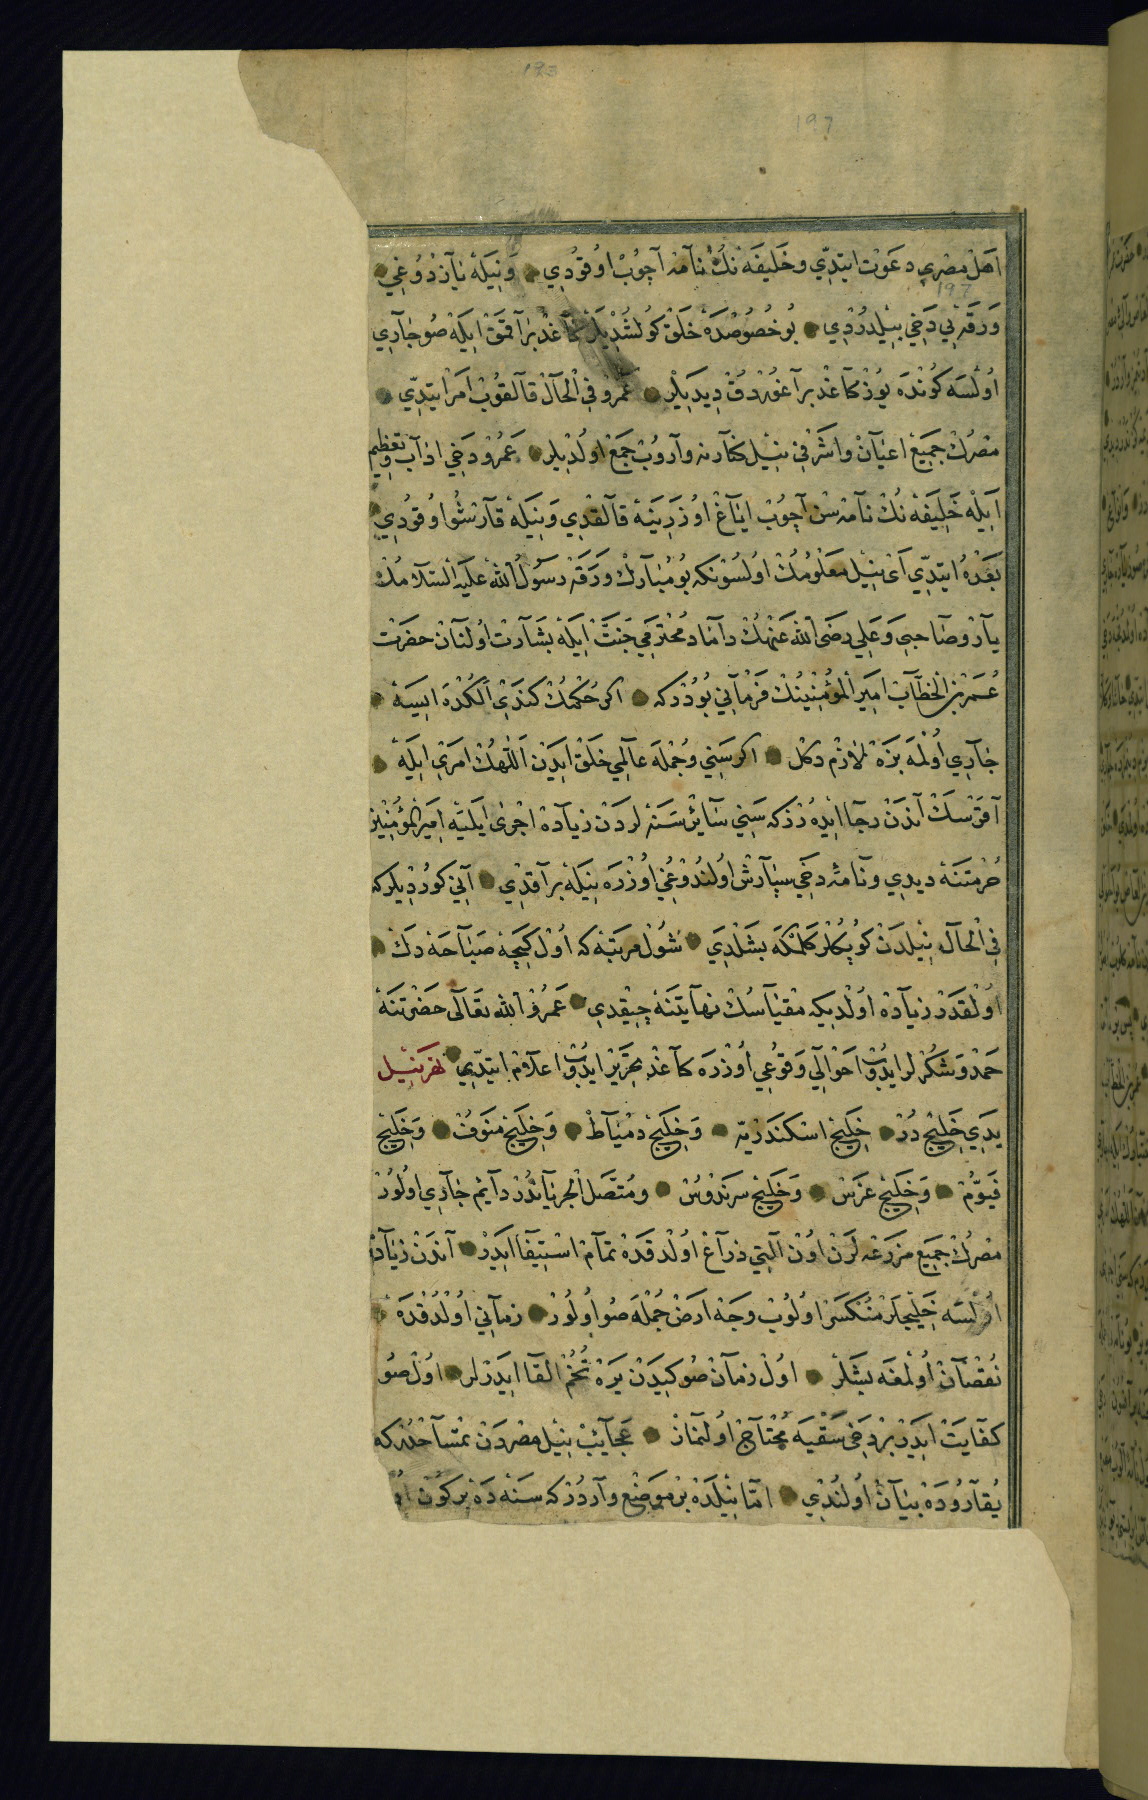 193
197
اهل مصري دعوت ايتدّي و خليفه نك نامه آچوب اوقودي و نيله يازدوغي
197
ورقه ني دخي بيلدردي بو خصوصده خلق كولشديلر كاغد براقمق ايله صو جاري
اولسه كونده يوز كاغد براغوردق ديديلر عمرو في الحال قالقوب امر ايتدّي
مصرك جميع اعيان و اشرفي نيل كنارنه واروب جمع اولديلر عمرو دخي اداب و تعظيم
ايله خليفه نك نامه سن آچوب اياغ اوزرينه قالقدي و نيله قارشو اوقودي
بعده ايتدّي اي نيل معلومك اولسونكه بو مبارك ورقه رسول الله عليه السلامك
يار و صاحبي و علي رضي الله عنهك داماد محترمي جنت ايله بشارت اولنان حضرت
عمر بن الخطاب امير المؤمنينك فرماني بودركه اكر حكمك كندي الكده ايسه
جاري اولمه بزه لازم دكل اكر سني و جمله عالمي خلق ايدن اللهك امري ايله
آقرسك آندن رجا ايده رزكه سني سائر سنه لردن زياده اجرى ايليه امير المؤمنين
حرمتنه ديدي و نامه دخي سپارش اولندوغي اوزره نيله براقدي آني كورديلركه
في الحال نيلدن كوپكلر كلمكه بشلدي شول مرتبه كه اول كيجه صباحه دك
اولقدر زياده اولديكه مقياسك نهايتنه چيقدي عمرو الله تعالى حضرتنه
حمد و شكرلر ايدوب احوالي وقوعي اوزره كاغد تحرير ايدوب اعلام ايتدّي نهر نيل
يدي خليج در خليج اسكندريه و خليج دمياط و خليج منوف و خليج
فيوم و خليج عرس و خليج سرندوس و متصل الجريانلدر دايم جاري اولور
مصرك جميع مزرعه لرن اون التي ذراع اولدقده تمام استيفا ايدر آندن زياده
اولسه خليجلر منكسر اولوب وجه ارض جمله صو اولور زماني اولدقده
نقصان اولمغه بشلر اول زمان صو كيدن يره تخم القا ايدرلر اول صو
كفايت ايدر بر دخي سقيه محتاج اولمان عجايب نيل مصردن تمساحدركه
يقاروده بيان اولندي امّا نيلده بر موضع واردركه سنه ده بر كون